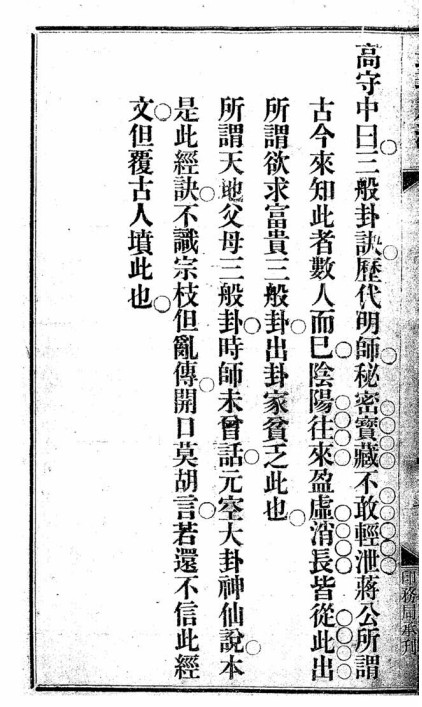 高守中曰三般卦訣歷代明師秘密寶藏不敢輕泄蔣公所謂
古今來知此者數人而已陰陽往來盈虛消長皆從此出
所謂欲求富貴三般卦出卦家貧乏此也
所謂天地父母三般卦時師未曾話元空大卦神仙說本
是此經訣不識宗枝但亂傳開口莫胡言若還不信此經
文但覆古人墳此也
印務局承刊